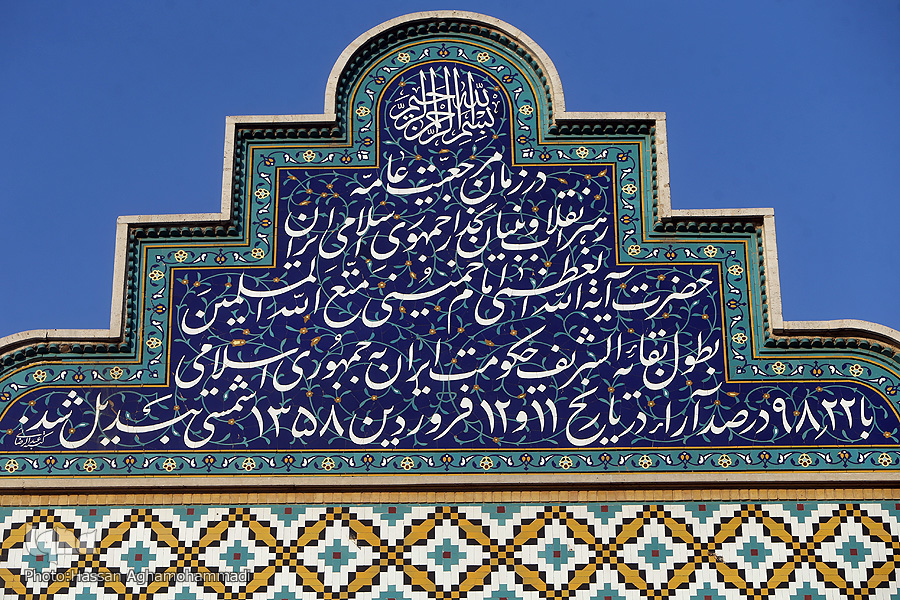 بسم الله الرحمن الرحیم
در زمان مرجعیت عامه
رهبر انقلاب و بنیان گذار جمهوری اسلامی ایران
حضرت آیة الله العظمی امام خمینی متع الله المسلمین
بطول بقائه الشریف حکومت ایران به جمهوری اسلامی
با ۹۸٫۲۲ درصد آراء در تاریخ ۱۱ و ۱۲ فروردین ۱۳۵۸ شمسی تبدیل شد
Photo:Hassan Aghamohammadi